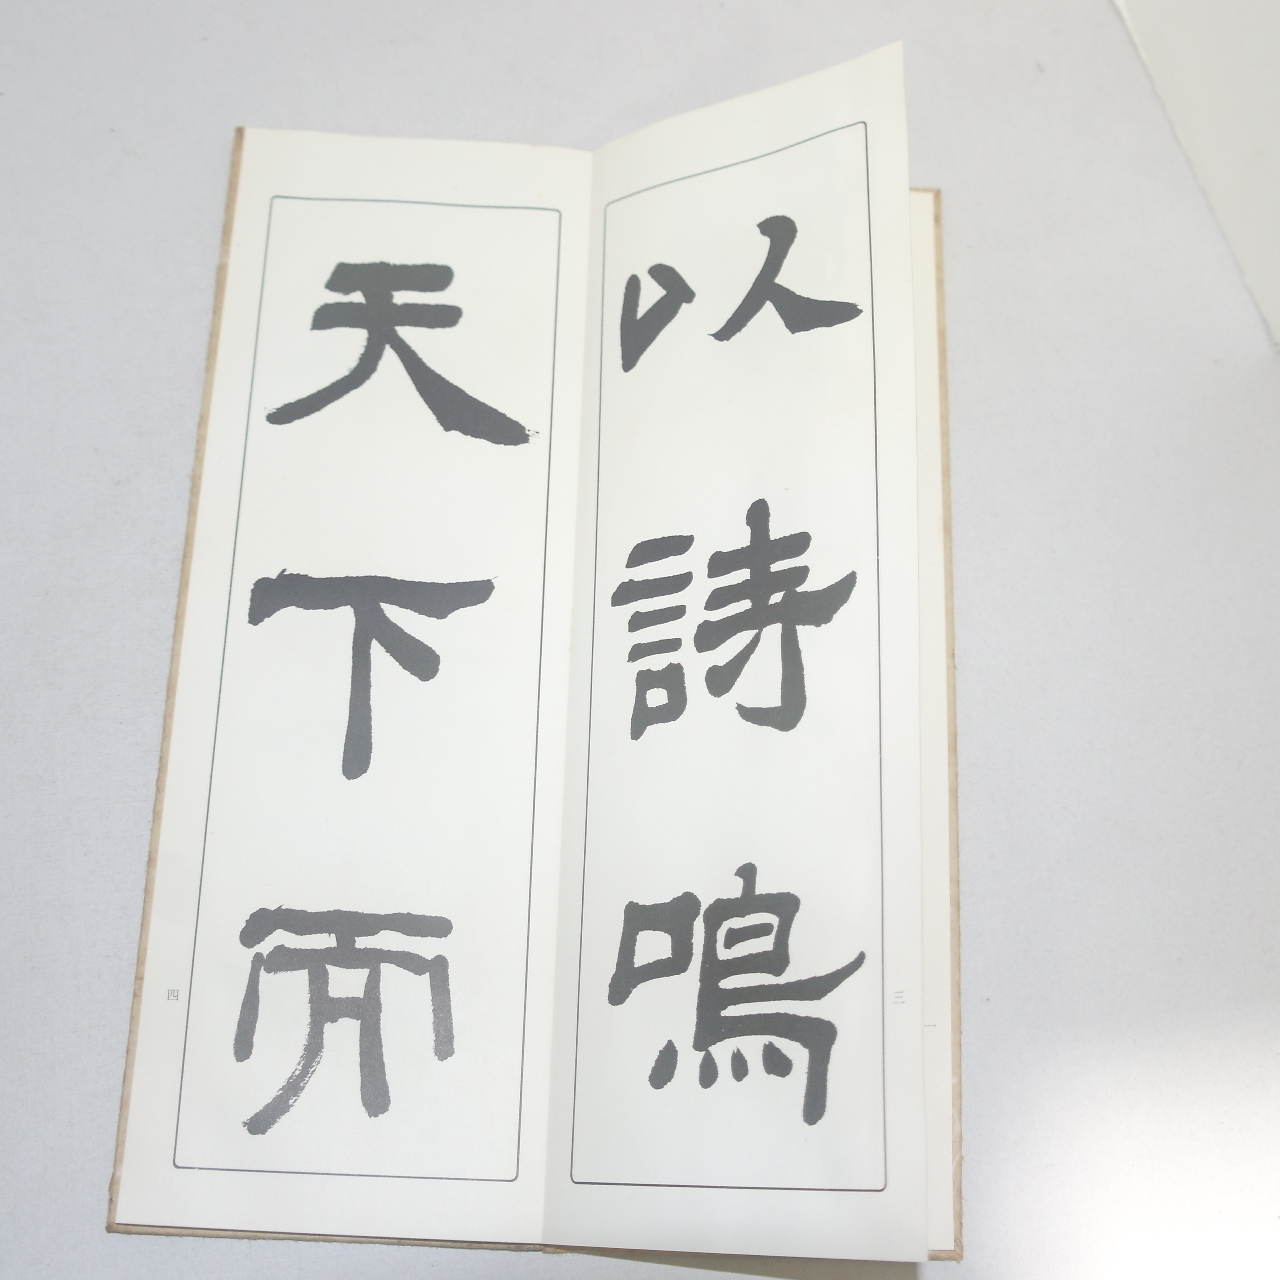 以詩鳴
天下而
三
四
一